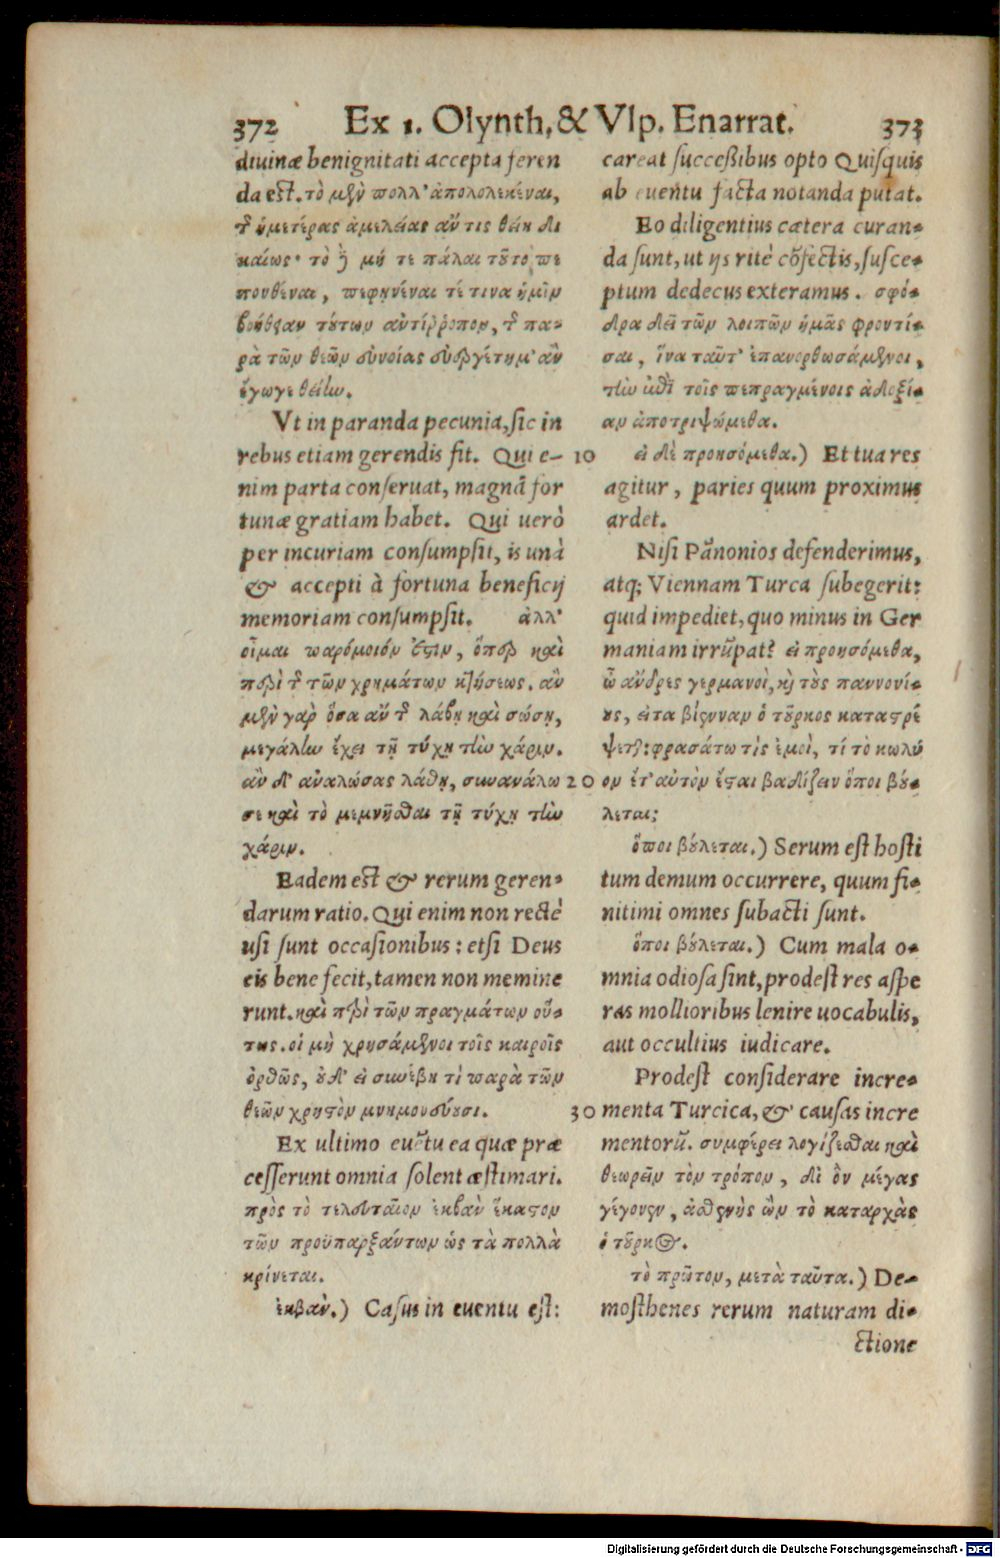 372 Ex 1. Olynth, & Vlp. Enarrat. 373
diuinæ benignitati accepta feren
da est. τὸ μὲν πολλ' ἀπολωλεκέναι,
τ ἡμετέρας ἀμελείας ἄν τις θείη δι
καίως· τὸ δὲ μή τε πάλαι τοῦτο πε
πονθέναι, πεφηνέναι τέ τινα ἡμῖν
τούτων ἀντίρροπον, τ πα-
ρὰ τῶν θεῶν εὐνοίας εὐεργέτημ' ἂν
ἔγωγε θείην.
Vt in paranda pecunia, sic in
rebus etiam gerendis fit. Qui e-
nim parta conseruat, magnā for
tunæ gratiam habet. Qui uerò
per incuriam consumpsit, is unà
& accepti à fortuna beneficij
memoriam consumpsit. ἀλλ'
οἶμαι παρόμοιόν ἐστιν, ὅπερ καὶ
περὶ τ τῶν χρημάτων κτήσεως. ἂν
μὲν γὰρ ὅσα ἄν τ λάβῃ καὶ σώσῃ,
μεγάλην ἔχει τῇ τύχῃ τὴν χάριν.
ἂν δ' ἀναλώσας λάθῃ, συνανάλω
σε καὶ τὸ μεμνῆσθαι τῇ τύχῃ τὴν
χάριν.
Eadem est & rerum geren-
darum ratio. Qui enim non rectè
usi sunt occasionibus: etsi Deus
eis bene fecit, tamen non memine
runt. καὶ περὶ τῶν πραγμάτων οὕ-
τως. οἱ μὴ χρησάμενοι τοῖς καιροῖς
ὀρθῶς, οὐδ' εἰ συνέβη τὶ παρὰ τῶν
θεῶν χρηστὸν μνημονεύουσι.
Ex ultimo euētu ea quæ præ
cesserunt omnia solent æstimari.
πρὸς τὸ τελευταῖον ἐκβὰν ἕκαστον
τῶν προϋπαρξάντων ὡς τὰ πολλὰ
κρίνεται.
ἐκβὰν.) Casus in euentu est:
careat successibus opto Quisquis
ab euentu facta notanda putat.
Eo diligentius cætera curan-
da sunt, ut ijs ritè cōfectis, susce-
ptum dedecus exteramus. σφό-
δρα δεῖ τῶν λοιπῶν ἡμᾶς φροντί-
σαι, ἵνα ταῦτ' ἐπανορθωσάμενοι,
τὴν ἐπὶ τοῖς πεπραγμένοις ἀδοξί-
αν ἀποτριψώμεθα.
10 εἰ δὲ προησόμεθα.) Et tua res
agitur, paries quum proximus
ardet.
Nisi Pānonios defenderimus,
atq; Viennam Turca subegerit:
quid impediet, quo minus in Ger
maniam irrūpat? εἰ προησόμεθα,
ὦ ἄνδρες γερμανοὶ, καὶ τοὺς παννονί-
ους, εἶτα βίενναν ὁ τοῦρκος καταστρέ
ψεται: φρασάτω τὶς ἐμοὶ, τί τὸ κωλύ
20 ον ἔτ' αὐτὸν ἔσται βαδίζειν ὅποι βού-
λεται;
ὅποι βούλεται.) Serum est hosti
tum demum occurrere, quum fi-
nitimi omnes subacti sunt.
ὅποι βούλεται.) Cum mala o-
mnia odiosa sint, prodest res aspe
ras mollioribus lenire uocabulis,
aut occultius iudicare.
Prodest considerare incre-
30 menta Turcica, & causas incre
mentorū. συμφέρει λογίζεσθαι καὶ
θεωρεῖν τὸν τρόπον, δι' ὃν μέγας
γέγονεν, ἀσθενὴς ὢν τὸ καταρχὰς
ὁ τοῦρκος.
τὸ πρῶτον, μετὰ ταῦτα.) De-
mosthenes rerum naturam di-
ctione
Digitalisierung gefördert durch die Deutsche Forschungsgemeinschaft - DFG